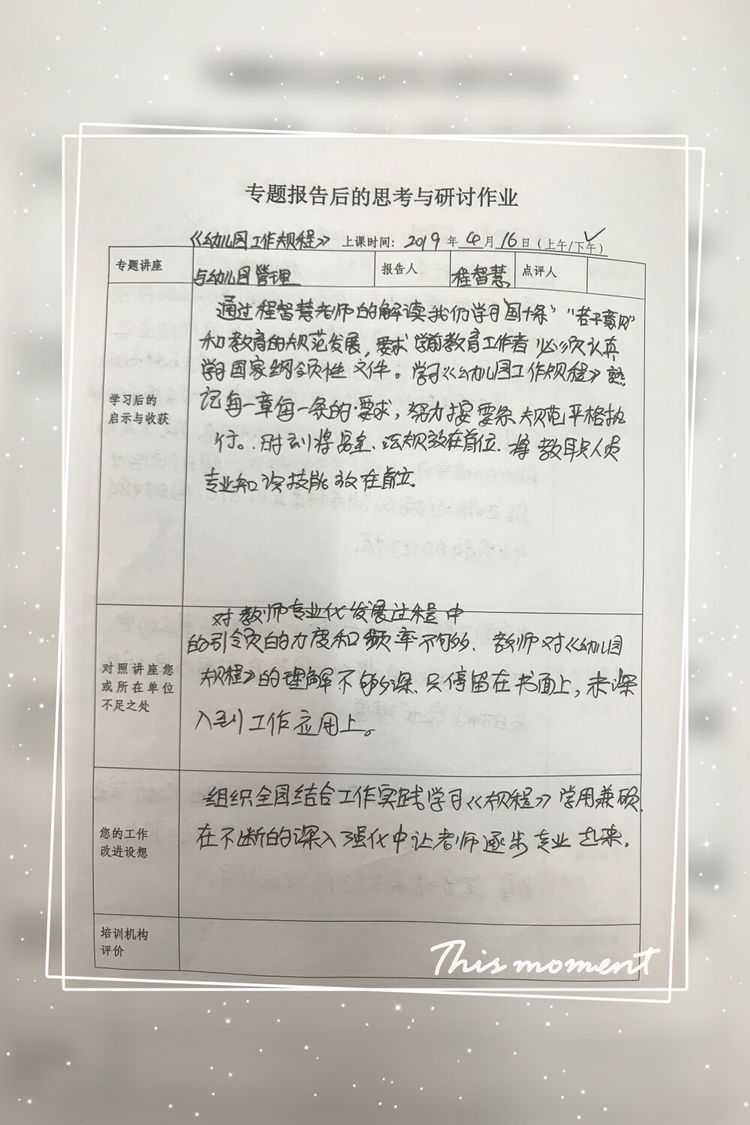 专题报告后的思考与研讨作业
《幼儿园工作规程》 上课时间：2019年4月16日（上午/下午）
专题讲座 与幼儿园管理 报告人 程智慧 点评人
学习后的
启示与收获
通过程智慧老师的解读我们学习"国十条""若干意见"
和教育的规范发展，要求学前教育工作者必须认真
学习国家纲领性文件。学习《幼儿园工作规程》熟
记每一章每一条的要求，努力按要求规范严格执
行。时刻将安全、法规放在首位，将教职人员
专业知识技能放在首位
对照讲座您
或所在单位
不足之处
对教师专业化发展过程中
的引领的力度和频率不够，教师对《幼儿园
规程》的理解不够深，只停留在书面上，未深
入到工作应用上。
您的工作
改进设想
组织全园结合工作实践学习《规程》学用兼顾，
在不断的深入强化中让老师逐步专业起来。
培训机构
评价
This moment